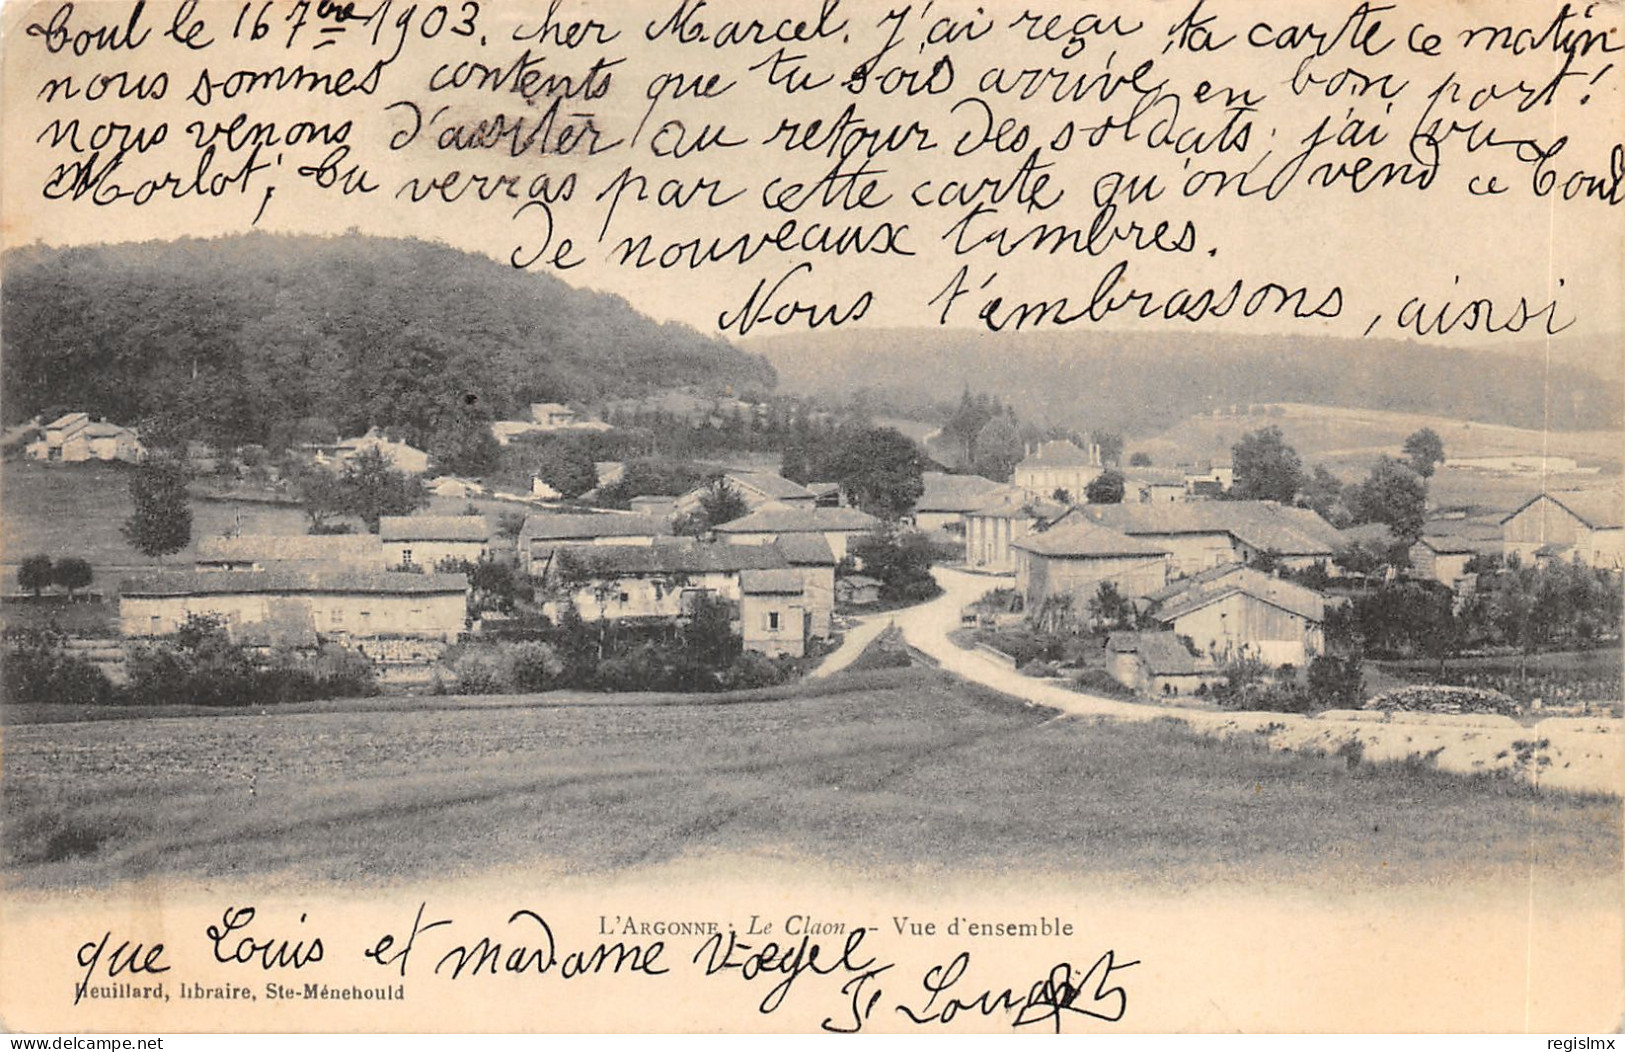 Toul le 16 7bre 1903. cher Marcel. j'ai reçu ta carte ce matin
nous sommes contents que tu sois arrivé en bon port!
nous venons d'assiter au retour des soldats; j'ai vu
Morlot; Tu verras par cette carte qu'on vend ce Toul
de nouveaux timbres.
Nous t'embrassons, ainsi
L'ARGONNE : Le Claon - Vue d'ensemble
que Louis et madame Vœgel
Heuillard, libraire, Ste-Ménehould
regislmx